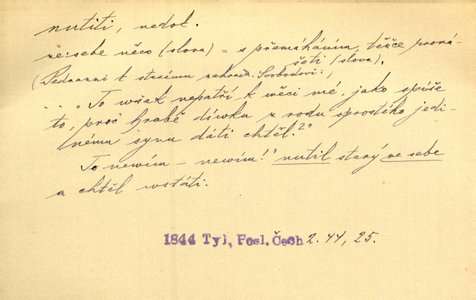 nutiti, nedok.
ze sebe něco (slova) = s přemáháním, těžce pronášeti (slova).
(Sedranni k starému zahrad. Svobodovi:)
... „To však nepatří k věci mé, jako spíše
to, proč hrabě dívku z rodu sprostého jedi-
nému synu dáti chtěl?"
To newím – newím!" nutil starý ze sebe
a chtěl vstáti.
1844 Tyl, Posl. Čech 2. 44, 25.